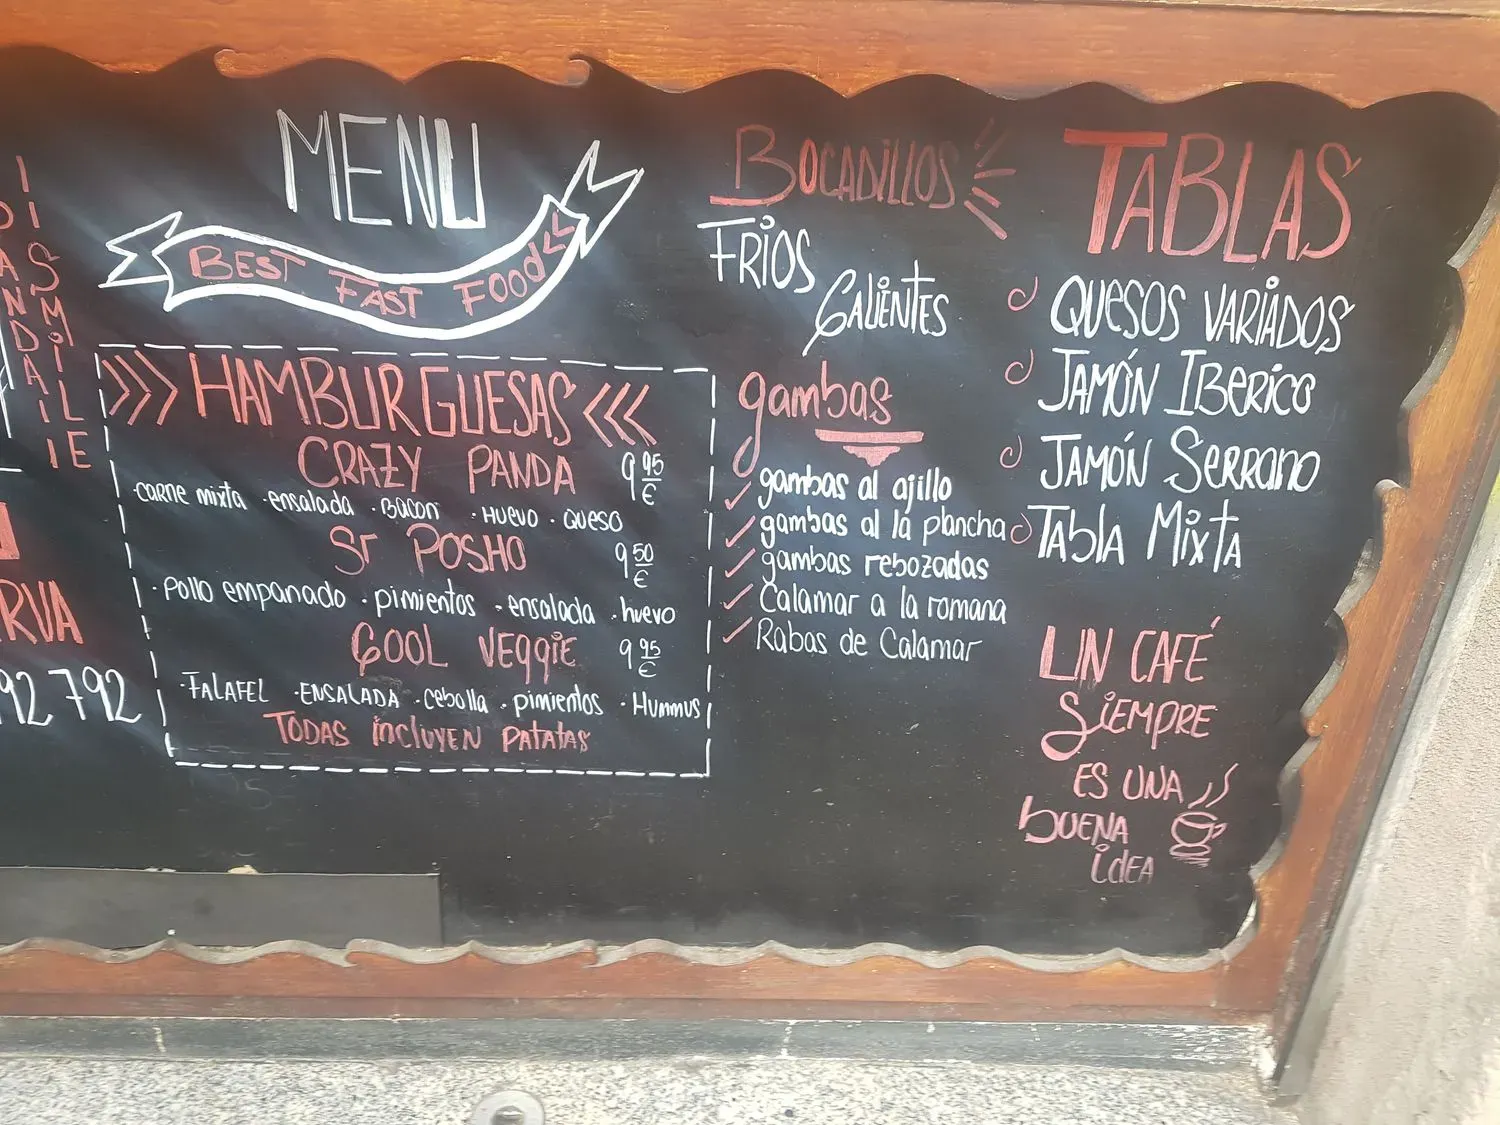 MENU
BEST FAST FOOD
HAMBURGUESAS
CRAZY PANDA 9,95 €
·CARNE mixta ·ensalada ·BACON ·HUEVO ·QUESO
Sr POSHO 9,50 €
·Pollo empanado ·pimientos ·ensalada ·huevo
COOL VEGGIE 9,95 €
·FALAFEL ·ENSALADA ·cebolla ·pimientos ·HUMMUS
TODAS incluyEN PATATAS
BOCADILLOS
FRIOS
CALIENTES
gambas
gambas al ajillo
gambas al la plancha
gambas rebozadas
Calamar a la romana
Rabas de Calamar
TABLAS
QUESOS VARIADOS
JAMÓN IBERICO
JAMÓN SERRANO
TABLA MIXTA
UN CAFÉ
SIEMPRE
ES UNA
bUENA
idEA
SMILE
RVA
92 792